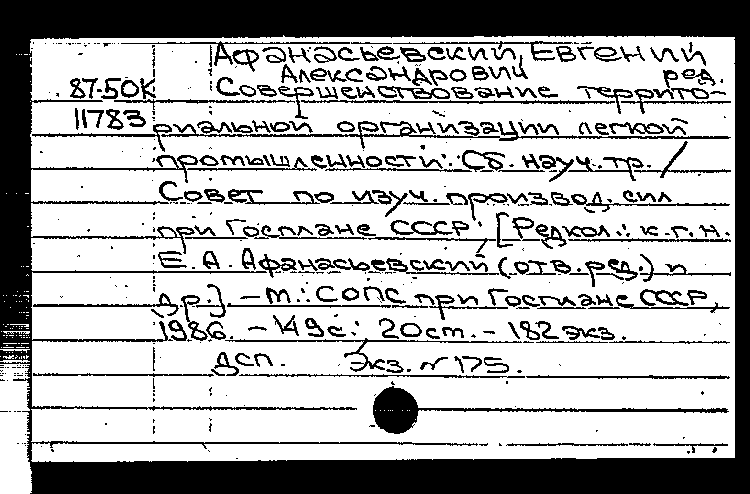 Афанасьевский, Евгений
Александрович ред.
87-50К Совершенствование террито-
11783 риальной организации легкой
промышленности: Сб. науч. тр. /
Совет по изуч. производ. сил
при Госплане СССР; [Редкол.: к.г.н.
Е. А. Афанасьевский (отв. ред.) и
др.]. – М.: СОПС при Госплане СССР,
1986. – 149с.: 20см. – 182 экз.
ДСП. Экз. № 175.